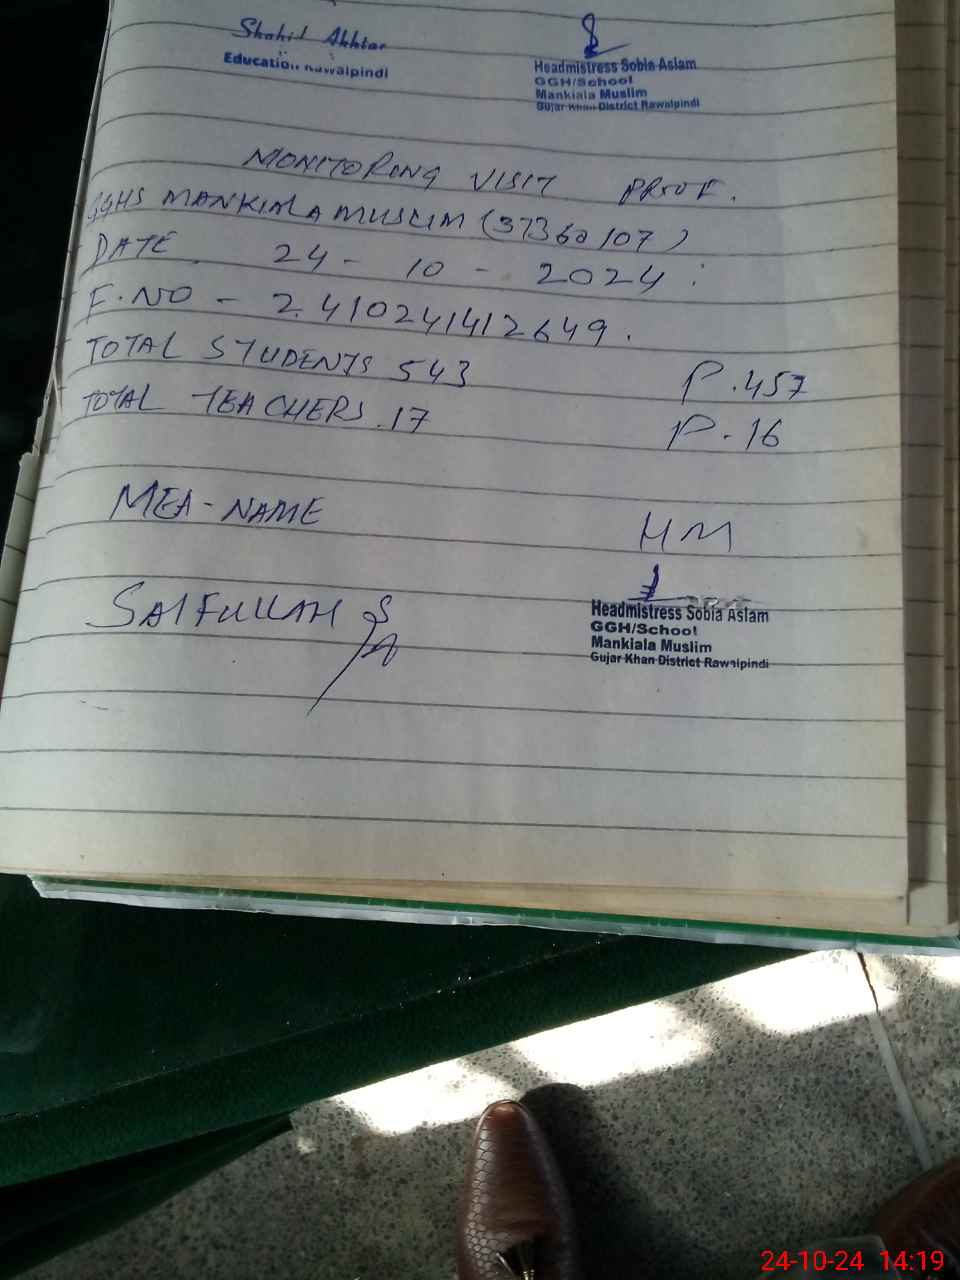 Shahil Akhtar
Education Rawalpindi
Headmistress Sobia Aslam
GGH/School
Mankiala Muslim
Gujar Khan District Rawalpindi
MONITORING VISIT PROOF.
GGHS MANKIALA MUSLIM (37360107)
DATE 24 - 10 - 2024 :
F.NO - 2.410241412649.
TOTAL STUDENTS 543 P.457
TOTAL TEACHERS.17 P.16
MEA-NAME HM
SAIFULLAH
Headmistress Sobia Aslam
GGH/School
Mankiala Muslim
Gujar Khan District Rawalpindi
24-10-24 14:19